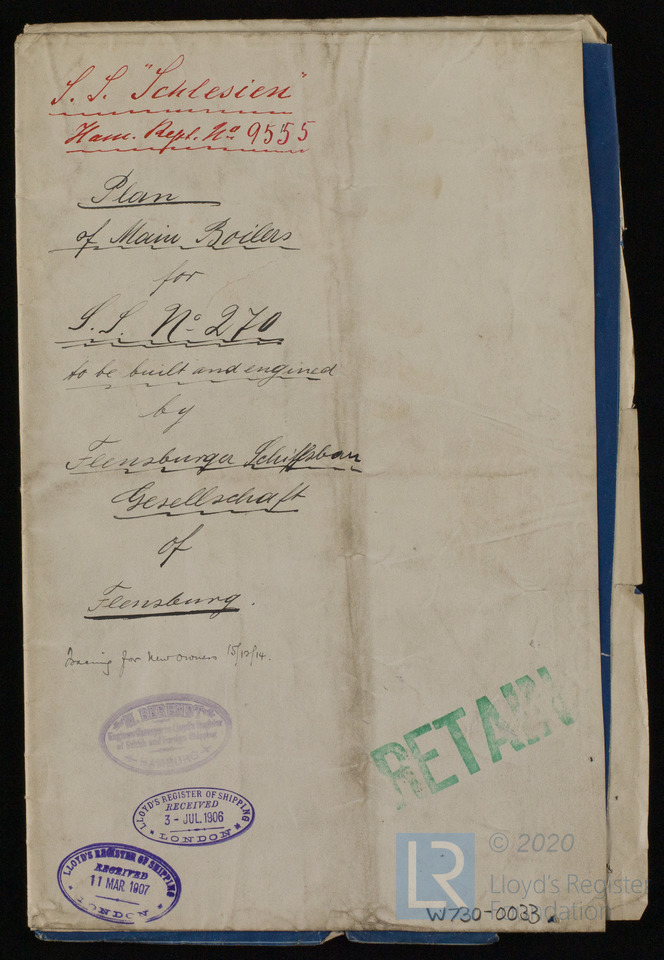 S. S. "Schlesien"
Ham. Rept. No 9555
Plan
of Main Boilers
for
S. S. No 270
to be built and engined
by
Flensburger Schiffsbau
Gesellschaft
of
Flensburg.
Tracing for New Owners 15/12/14.
H. BEHRENDT
Engineer Surveyor to Lloyd's Register
of British and Foreign Shipping
HAMBURG
RETAIN
LLOYD'S REGISTER OF SHIPPING
RECEIVED
3 - JUL. 1906
LONDON
LLOYD'S REGISTER OF SHIPPING
RECEIVED
11 MAR 1907
LONDON
LR
© 2020
Lloyd's Register
Foundation
W730-0033